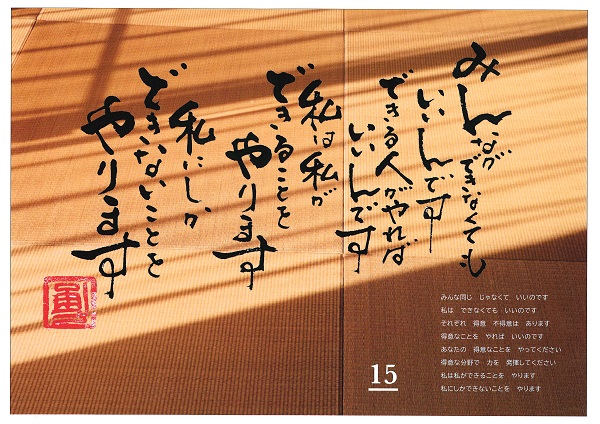 みんなができなくても
いいんです
できる人がやれば
いいんです
私は私が
できることを
やります
私にしか
できないことを
やります
みんな同じ　じゃなくて　いいのです
私は　できなくても　いいのです
それぞれ　得意　不得意は　あります
得意なことを　やれば　いいのです
あなたの　得意なことを　やってください
得意な分野で　力を　発揮してください
私は私ができることを　やります
私にしかできないことを　やります
15